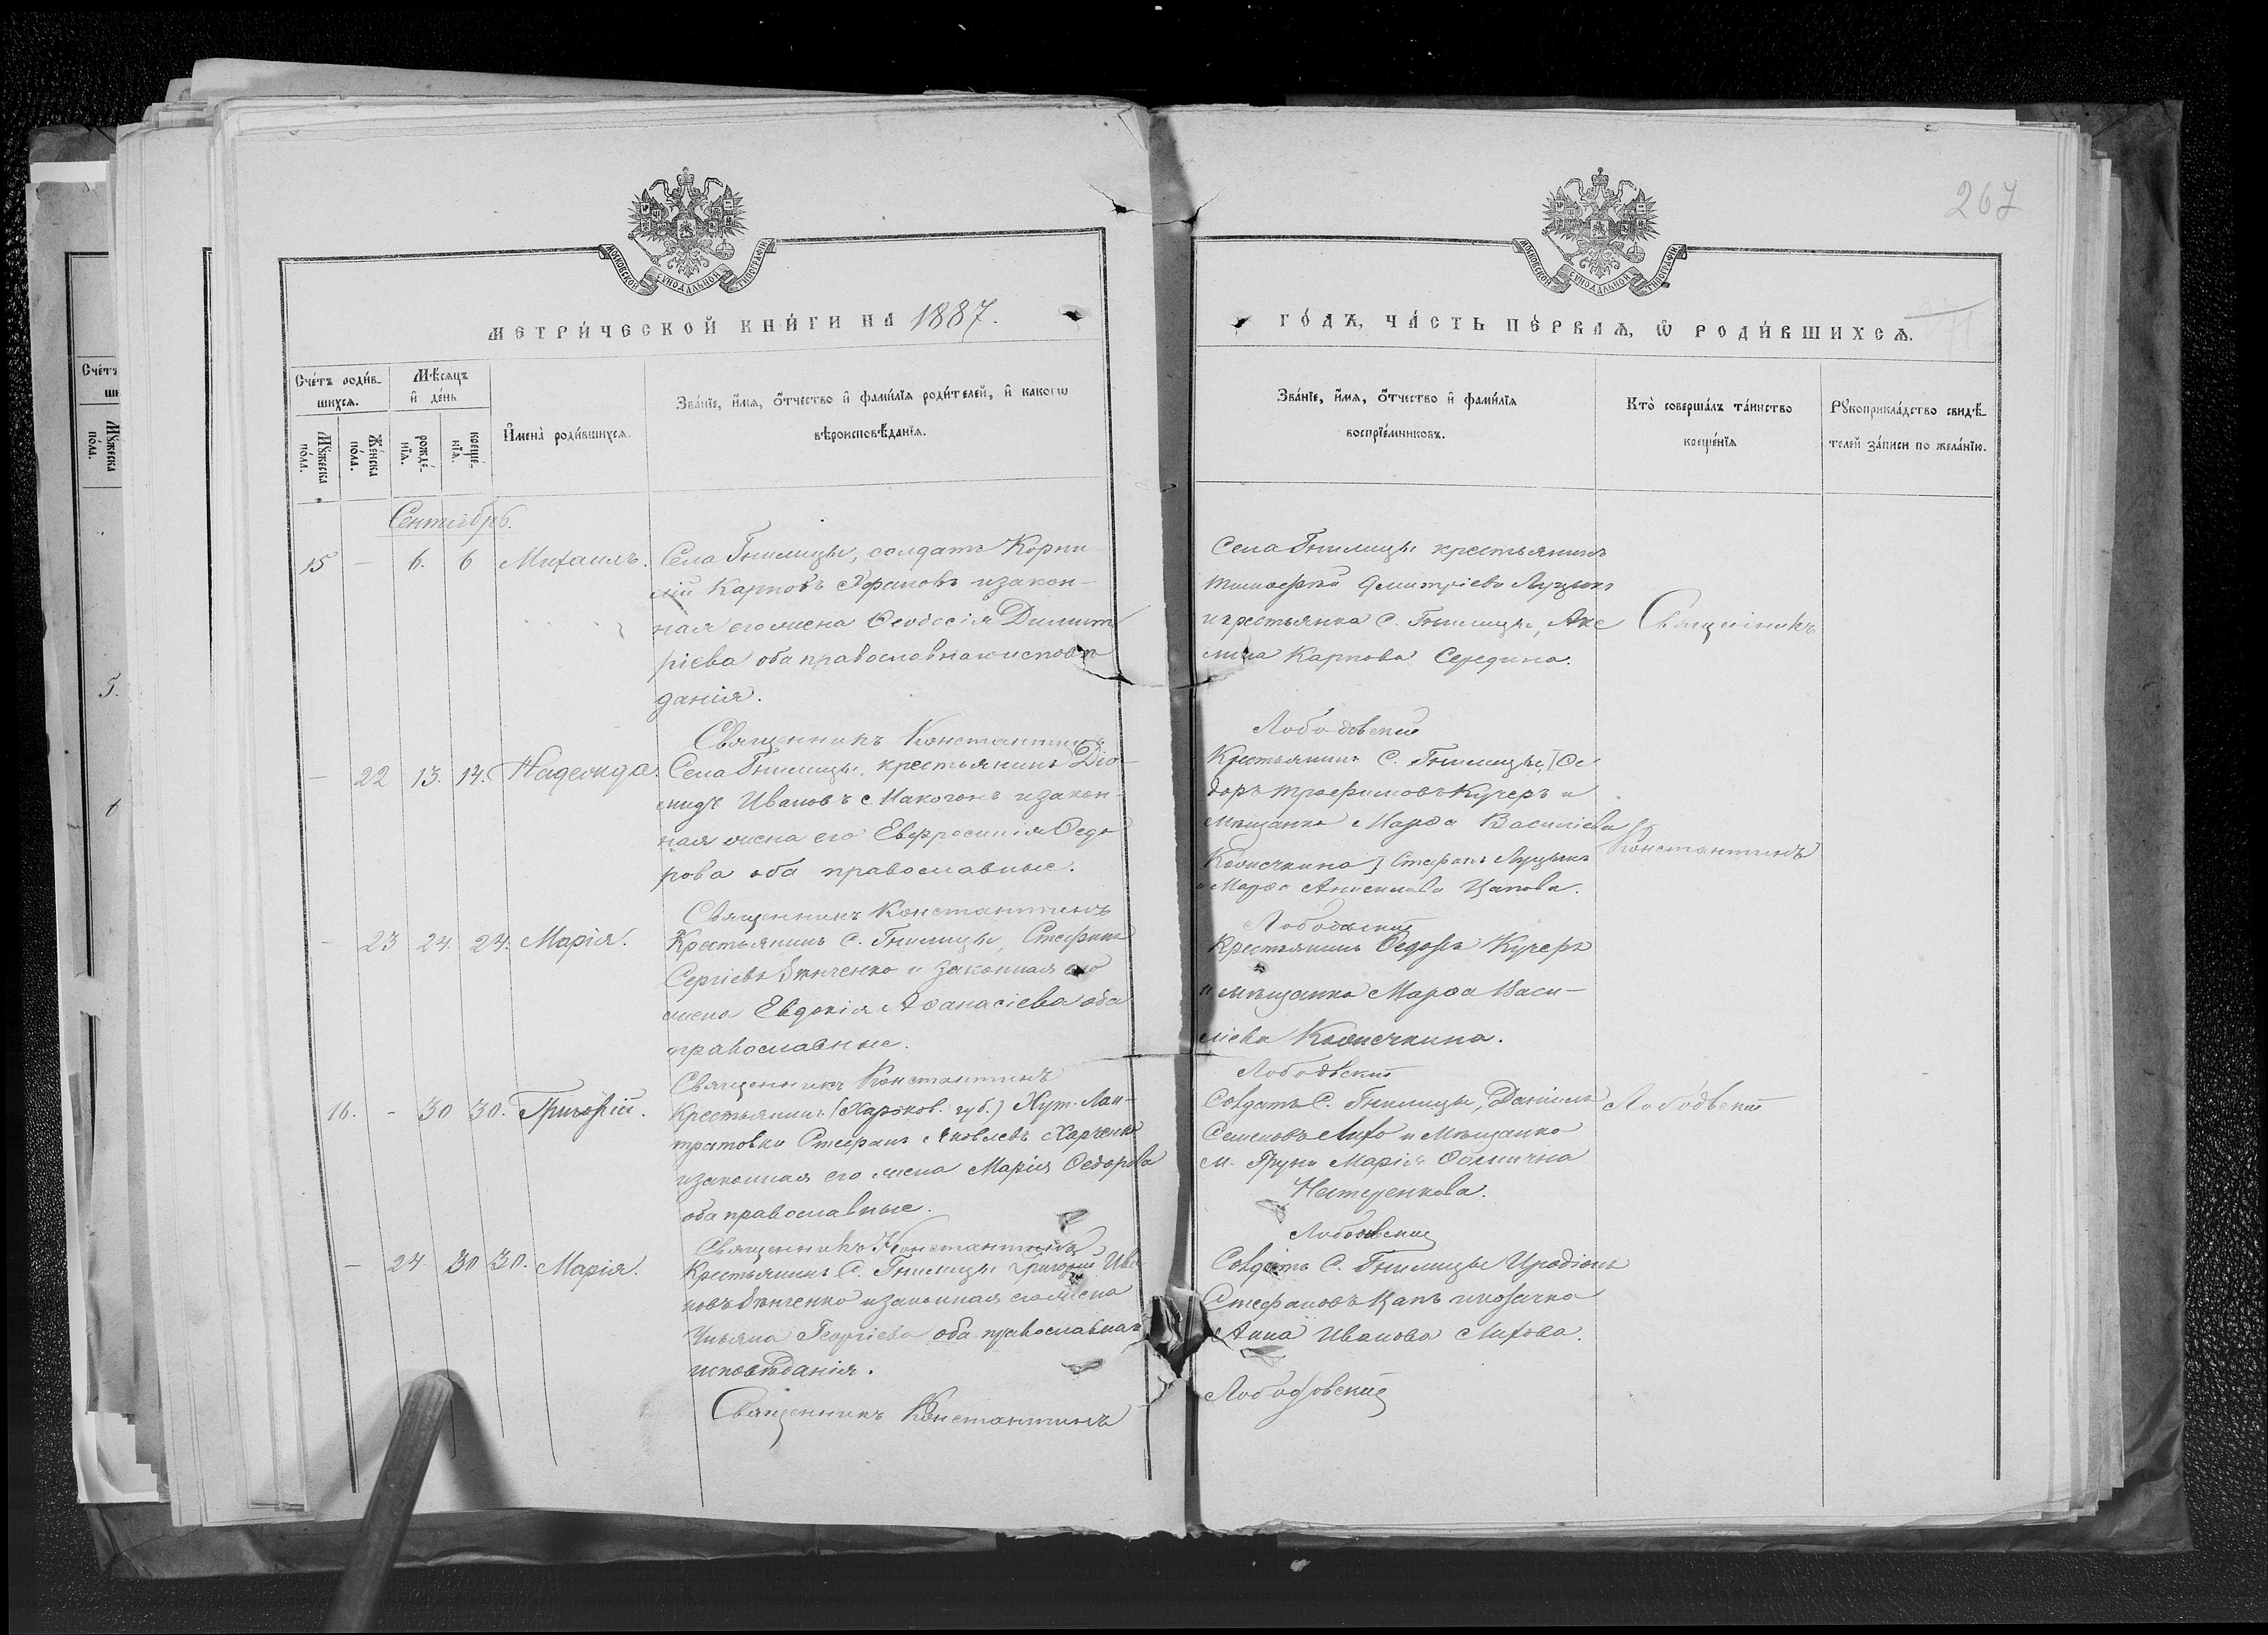 267
МОСКОВСКОЙ СѴНОДАЛЬНОЙ ТИПОГРАФІИ
МОСКОВСКОЙ СѴНОДАЛЬНОЙ ТИПОГРАФІИ
МЕТРИ́ЧЕСКОЙ КНИ́ГИ НА 1887.
ГО́ДЪ, ЧА́СТЬ ПЕ́РВАѦ, Ѡ҆ РОДИ́ВШИХСѦ.
Сче́тъ роди́в-
шихсѧ.
Мѣ́сѧцъ
и҆ де́нь
Мꙋ́жеска по́ла.
Же́нска по́ла.
рожде́-нїѧ.
креще́-нїѧ.
И҆мена̀ роди́вшихсѧ.
Зва́нїе, и҆́мѧ, ѻ҆́тчество и҆ фами́лїѧ роди́телей, и҆ какогѡ
вѣроисповѣ́данїѧ.
Зва́нїе, и҆́мѧ, ѻ҆́тчество и҆ фами́лїѧ
воспрїе́мниковъ.
Кто̀ соверша́лъ та́инство
креще́нїѧ
Рꙋкоприкла́дство свидѣ́-
телей за́писи по жела́нїю.
Сентябрь.
15 — 6. 6 Михаилъ.
Села Гнилицы, солдатъ Корни
лій Карповъ изакон-
ная его жена Ѳеодосія Димит
ріева оба православнаго исповѣ
данія.
Священникъ Константинъ
Села Гнилицы крестьянинъ
Тимофей Дмитріевъ Луцыкъ
и крестьянка С. Гнилицы, Акс
Карпова Середина.
Лободовскій
Священникъ
— 22 13. 14. Надежда.
Села Гнилицы, крестьянинъ Діо
мидъ Ивановъ Макогонъ изакон-
ная жена его Евфросинія Ѳедо
рова оба православные.
Священникъ Константинъ
Крестьянинъ С. Гнилицы, Ѳе
доръ Трофимовъ Кучеръ и
мѣщанка Марѳа Василіева
Стефанъ Луцыкъ
и Марѳа Анисимова Цапова.
Лободовскій
Константинъ
— 23 24. 24. Марія.
Крестьянинъ С. Гнилицы, Стефанъ
Сергіевъ и законная его
жена Евдокія Аѳанасіева оба
православные.
Священникъ Константинъ
Крестьянинъ Ѳедоръ Кучеръ
и мѣщанка Марѳа Васи-
ліева
Лободовскій
16. - 30 30. Григорій.
Крестьянинъ (Харьков. губ.) Хут. Лан-
тратовки Стефанъ Яковлевъ Харченко
изаконная его жена Марія Ѳедорова
оба православные.
Священникъ Константинъ
Солдатъ С. Гнилицы, Даніилъ
Семеновъ Лихо и мѣщанка
Марія
Нестеренкова.
Лободовскій
Лободовскій
— 24 30 30. Марія.
Крестьянинъ С. Гнилицы Григорій Ива
новъ изаконная его жена
Ульяна Георгіева оба православнаго
исповѣданія.
Священникъ Константинъ
Солдатъ С. Гнилицы Иродіонъ
Стефановъ Цапъ и казачка
Анна Иванова Лихова.
Лободовскій